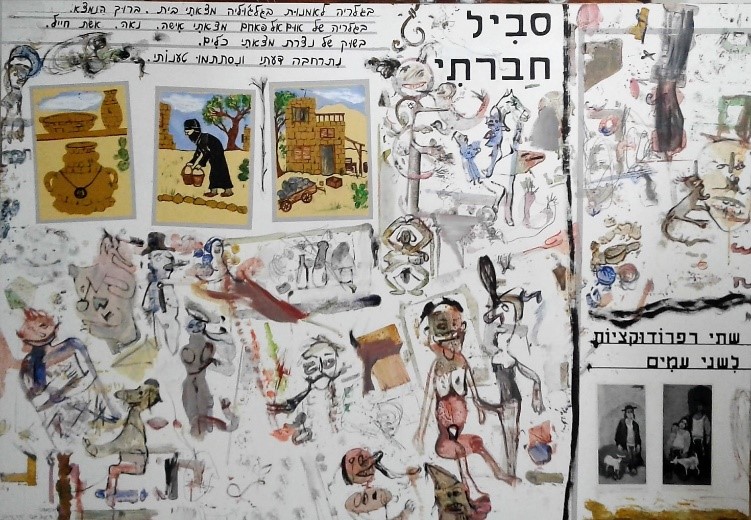 בגלריה לאמנות בגלגוליה מצאתי בית. ברוך הנמצא.
בגלריה של אום אל פאחם מצאתי אישה. נאה. אשת חייל.
בשוק של נצרת מצאתי כלים.
נתרחבה דעתי ונסתתמו טענותי.
סביל
חברתי
שתי רפרודוקציות
לשני עמים